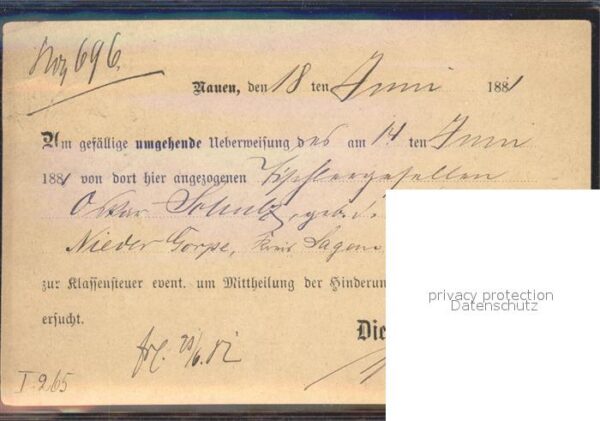 No 696.
Nauen, den 18 ten Juni 1881
Um gefällige umgehende Ueberweisung des am 14 ten Juni
1881 von dort hier angezogenen Tischlergesellen
Oskar Schulz, geb.
Nieder Gorpe, Kreis Sagan
zur Klassensteuer event. um Mittheilung der Hinderun
ersucht.
Die
privacy protection
Datenschutz
I. 965